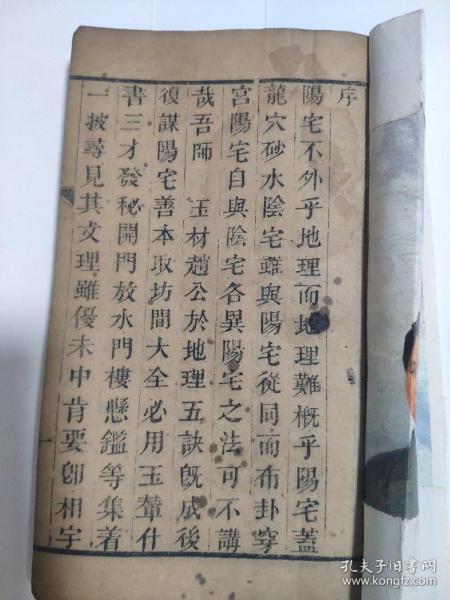 序
陽宅不外乎地理而地理難概乎陽宅蓋
龍穴砂水陰宅雖與陽宅從同而布卦穿
宮陽宅自與陰宅各異陽宅之法可不講
哉吾師 玉材趙公於地理五訣既成後
復謀陽宅善本取坊間大全必用玉輦什
書三才發秘開門放水門樓懸鑑等集着
一披尋見其文理雖優未中肯要卽相宇
一
孔夫子旧书网
www.kongfz.com